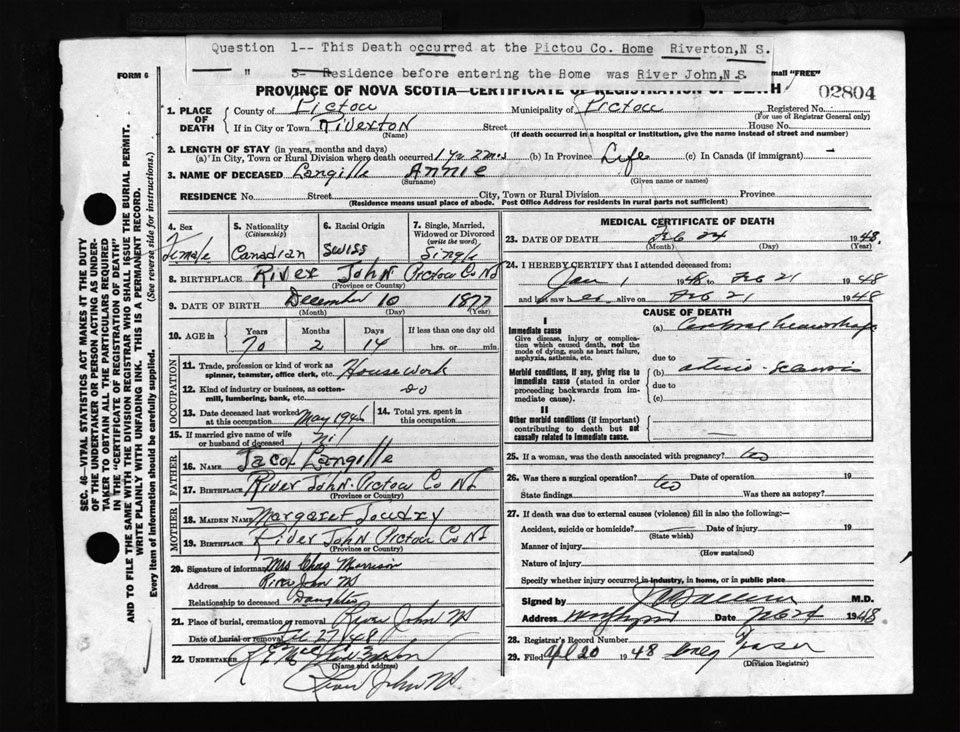 Question 1-- This Death occurred at the Pictou Co. Home Riverton,N S.
" 5- Residence before entering the Home was River John,N.S
FORM 6
mall "FREE"
PROVINCE OF NOVA SCOTIA—CERTIFICATE OF REGISTRATION OF DEATH
02804
1. PLACE OF DEATH
County of Pictou Municipality of Pictou Registered No.
(For use of Registrar General only)
If in City or Town Riverton Street House No.
(Name) (If death occurred in a hospital or institution, give the name instead of street and number)
2. LENGTH OF STAY (in years, months and days)
(a) In City, Town or Rural Division where death occurred 1 yr 2 mos (b) In Province Life (c) In Canada (if immigrant) -
3. NAME OF DECEASED Langille Annie
(Surname) (Given name or names)
RESIDENCE No. Street City, Town or Rural Division Province
(Residence means usual place of abode. Post Office Address for residents in rural parts not sufficient)
SEC. 46—VITAL STATISTICS ACT MAKES IT THE DUTY
OF THE UNDERTAKER OR PERSON ACTING AS UNDER-
TAKER TO OBTAIN ALL THE PARTICULARS REQUIRED
IN THE "CERTIFICATE OF REGISTRATION OF DEATH"
AND TO FILE THE SAME WITH THE DIVISION REGISTRAR WHO SHALL ISSUE THE BURIAL PERMIT.
WRITE PLAINLY WITH UNFADING INK. THIS IS A PERMANENT RECORD.
Every item of information should be carefully supplied. (See reverse side for instructions.)
4. Sex
Female
5. Nationality
(Citizenship)
Canadian
6. Racial Origin
Swiss
7. Single, Married,
Widowed or Divorced
(write the word)
Single
8. BIRTHPLACE River John Pictou Co NS
(Province or Country)
9. DATE OF BIRTH December 10 1877
(Month) (Day) (Year)
10. AGE in
Years Months Days If less than one day old
70 2 14 hrs. or min.
OCCUPATION
11. Trade, profession or kind of work as
spinner, teamster, office clerk, etc. House work
12. Kind of industry or business, as cotton-
mill, lumbering, bank, etc. do
13. Date deceased last worked
at this occupation May 1946
14. Total yrs. spent in
this occupation
15. If married give name of wife
or husband of deceased Nil
FATHER
16. NAME Jacob Langille
17. BIRTHPLACE River John Pictou Co NS
(Province or Country)
MOTHER
18. MAIDEN NAME Margaret Joudry
19. BIRTHPLACE River John Pictou Co NS
(Province or Country)
20. Signature of informant Mrs Chas Morrison
Address River John NS
Relationship to deceased Daughter
21. Place of burial, cremation or removal River John NS
Date of burial or removal Feb 27/48
22. UNDERTAKER
(Name and address)
River John NS
MEDICAL CERTIFICATE OF DEATH
23. DATE OF DEATH Feb 24 1948.
(Month) (Day) (Year)
24. I HEREBY CERTIFY that I attended deceased from:
Jan 1 1948 to Feb 21 1948
and last saw her alive on Feb 21 1948
CAUSE OF DEATH
I
Immediate cause
Give disease, injury or complica-
tion which caused death, not the
mode of dying, such as heart failure,
asphyxia, asthenia, etc.
(a) Cerebral hemorrhage
due to
Morbid conditions, if any, giving rise to
immediate cause (stated in order
proceeding backwards from im-
mediate cause).
(b) arterio-Sclerosis
due to
(c)
II
Other morbid conditions (if important)
contributing to death but not
causally related to immediate cause.
25. If a woman, was the death associated with pregnancy? no
26. Was there a surgical operation? no Date of operation 19
State findings Was there an autopsy?
27. If death was due to external causes (violence) fill in also the following:—
Accident, suicide or homicide? Date of injury 19
(State which)
Manner of injury
(How sustained)
Nature of injury
Specify whether injury occurred in industry, in home, or in public place
Signed by M.D.
Address Date Feb 24 1948
28. Registrar's Record Number
29. Filed Apl 20 1948 Fraser
(Division Registrar)